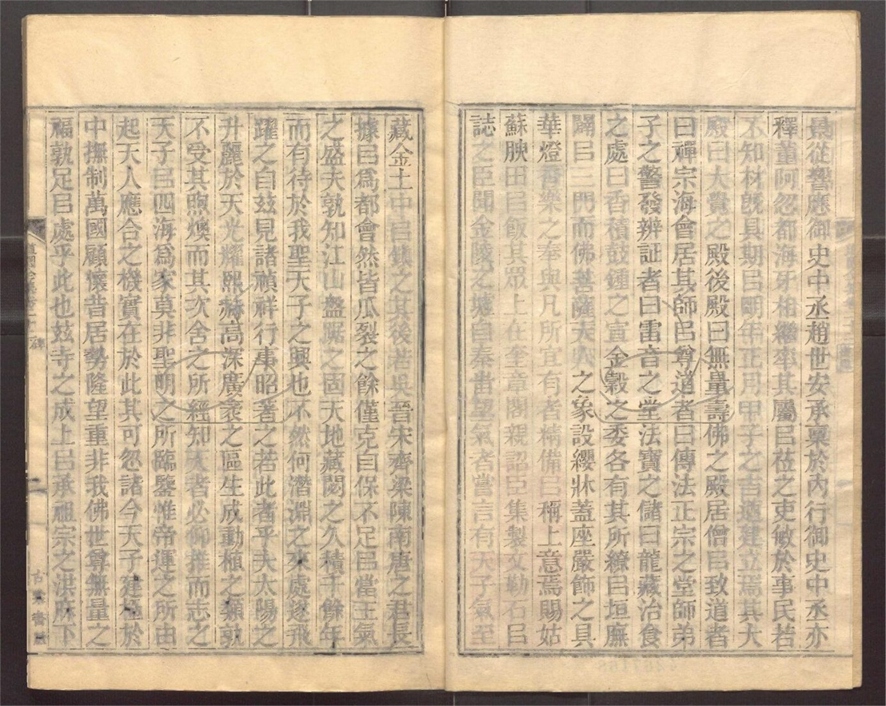 景從響應御史中丞趙世安承稟於內行御史中丞亦
釋董阿忽都海牙相繼率其屬㠯莅之吏敏於事民若
不知材旣具期㠯明年正月甲子之吉建立焉其大
殿曰大覺之殿後殿曰無量壽佛之殿居僧㠯致道者
曰禪宗海會居其師㠯尊道者曰傳法正宗之堂師弟
子之警發辨証者曰雷音之堂法寶之儲曰龍藏治食
之處曰香積鼓鍾之宣金穀之委各有其所繚㠯垣廡
闢㠯三門而佛菩薩天人之象設纓牀蓋座嚴飾之具
華燈音樂之奉與凡所宜有者備㠯稱上意焉賜姑
蘇腴田㠯飯其眾上在奎章閣親詔臣集製文勒石㠯
誌之臣聞金陵之墟自秦時望氣者嘗言有天子氣至
藏金土中㠯鎮之其後若吳晉宋齊梁陳南唐之君長
據㠯爲都會然皆瓜裂之餘僅克自保不足㠯當王氣
之盛夫孰知江山盤踞之固天地藏閟之久積千餘年
而有待於我聖天子之興也不然何潛淵之來處遂飛
躍之自茲見諸禎祥行事昭著之若此者乎夫太陽之
升麗於天光耀熙赫高深廣袤之區生成動植之類孰
不受其煦燠而其次舍之所經知天者必仰推而志之
天子㠯四海爲家莫非聖明之所臨鑒惟帝運之所由
起天人應合之機實在於此其可忽諸今天子建極於
中撫制萬國顧懷昔居勢隆望重非我佛世尊無量之
福孰足㠯處乎此也茲寺之成上㠯承祖宗之洪庥下